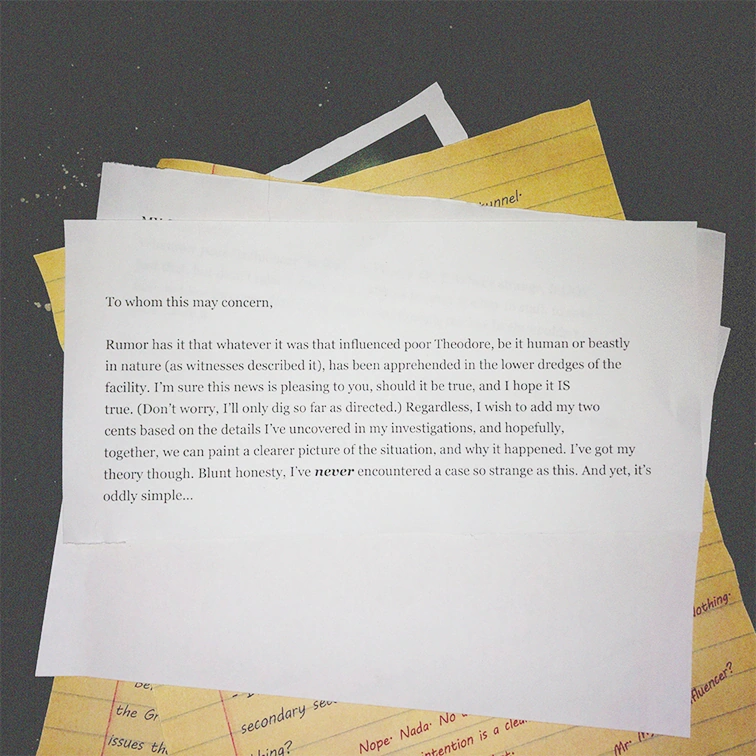 To whom this may concern,
Rumor has it that whatever it was that influenced poor Theodore, be it human or beastly
in nature (as witnesses described it), has been apprehended in the lower dredges of the
facility. I'm sure this news is pleasing to you, should it be true, and I hope it IS
true. (Don't worry, I'll only dig so far as directed.) Regardless, I wish to add my two
cents based on the details I've uncovered in my investigations, and hopefully,
together, we can paint a clearer picture of the situation, and why it happened. I've got my
theory though. Blunt honesty, I've never encountered a case so strange as this. And yet, it's
oddly simple...
the
issues
secondary
Nope. Nada. No
intention is a
Mr.